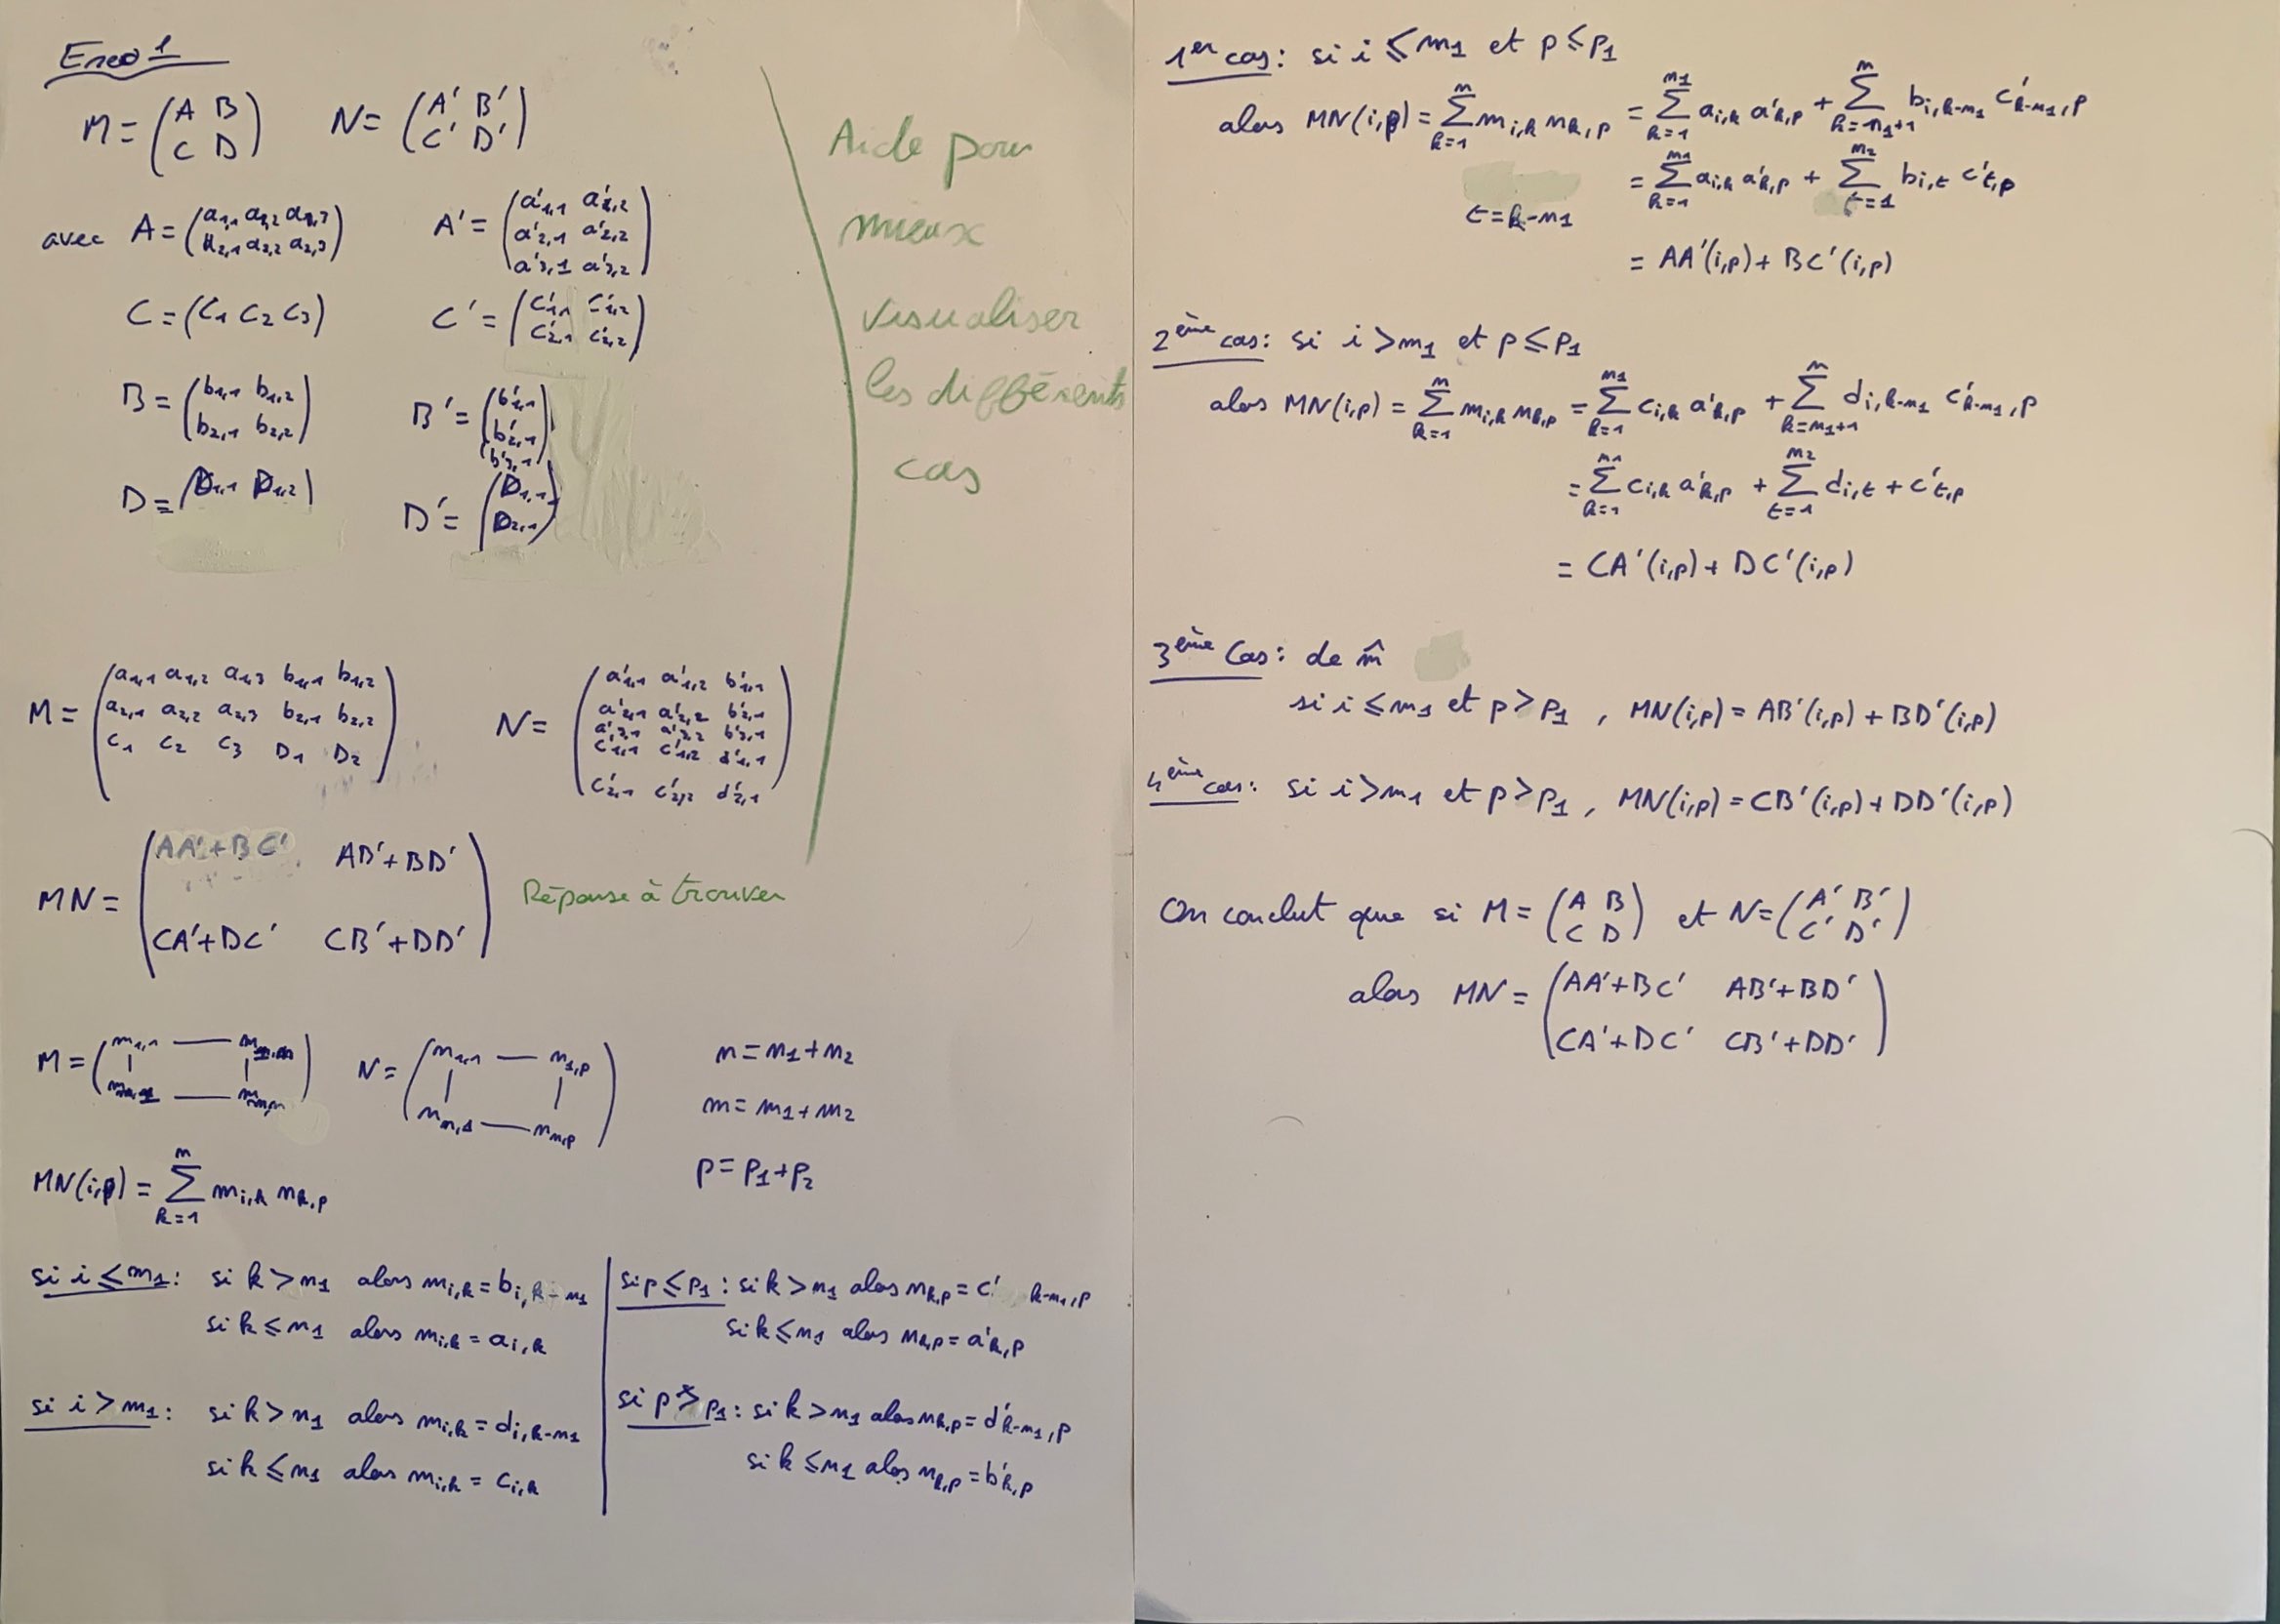 Exo 1
M = (A B / C D)   N = (A' B' / C' D')
avec A = (a1,1 a1,2 a1,3 / a2,1 a2,2 a2,3)   A' = (a'1,1 a'1,2 / a'2,1 a'2,2 / a'3,1 a'3,2)
C = (C1 C2 C3)   C' = (C'1,1 C'1,2 / C'2,1 C'2,2)
B = (b1,1 b1,2 / b2,1 b2,2)   B' = (b'1,1 / b'2,1 / b'3,1)
D = (D1,1 D1,2)   D' = (D1,1 / D2,1)
Aide pour
mieux
visualiser
les différents
cas
M = (a1,1 a1,2 a1,3 b1,1 b1,2 / a2,1 a2,2 a2,3 b2,1 b2,2 / C1 C2 C3 D1 D2)   N = (a'1,1 a'1,2 b'1,1 / a'2,1 a'2,2 b'2,1 / a'3,1 a'3,2 b'3,1 / C'1,1 C'1,2 d'1,1 / C'2,1 C'2,2 d'2,1)
MN = (AA'+BC' AB'+BD' / CA'+DC' CB'+DD')   Réponse à trouver
M = (m1,1 — / —)   N = (n1,1 — n1,p / nn,1 — nn,p)   n = n1+n2
m = m1+m2
p = p1+p2
MN(i,p) = Σ k=1 n mi,k nk,p
si i ≤ m1 : si k > n1 alors mi,k = bi,k-n1
si k ≤ n1 alors mi,k = ai,k
si i > m1 : si k > n1 alors mi,k = di,k-n1
si k ≤ n1 alors mi,k = ci,k
si p ≤ p1 : si k > n1 alors nk,p = c' k-n1,p
si k ≤ n1 alors nk,p = a'k,p
si p > p1 : si k > n1 alors nk,p = d'k-n1,p
si k ≤ n1 alors nk,p = b'k,p
1er cas : si i ≤ m1 et p ≤ p1
alors MN(i,p) = Σ k=1 n mi,k nk,p = Σ k=1 n1 ai,k a'k,p + Σ k=n1+1 n bi,k-n1 c'k-n1,p
= Σ k=1 n1 ai,k a'k,p + Σ t=1 n2 bi,t c't,p
t = k-n1
= AA'(i,p) + BC'(i,p)
2ème cas : si i > m1 et p ≤ p1
alors MN(i,p) = Σ k=1 n mi,k nk,p = Σ k=1 n1 ci,k a'k,p + Σ k=n1+1 n di,k-n1 c'k-n1,p
= Σ k=1 n1 ci,k a'k,p + Σ t=1 n2 di,t + c't,p
= CA'(i,p) + DC'(i,p)
3ème Cas : de m̂
si i ≤ m1 et p > p1 , MN(i,p) = AB'(i,p) + BD'(i,p)
4ème cas : si i > m1 et p > p1 , MN(i,p) = CB'(i,p) + DD'(i,p)
On conclut que si M = (A B / C D) et N = (A' B' / C' D')
alors MN = (AA'+BC' AB'+BD' / CA'+DC' CB'+DD')